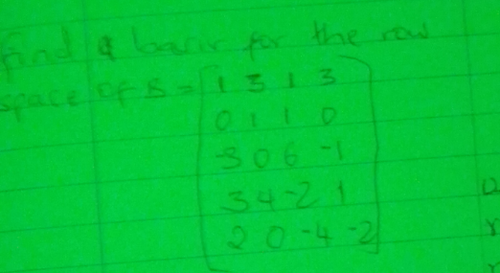 find a basis for the row
space of B = [1 3 1 3
0 1 1 0
-3 0 6 -1
3 4 -2 1
2 0 -4 -2]